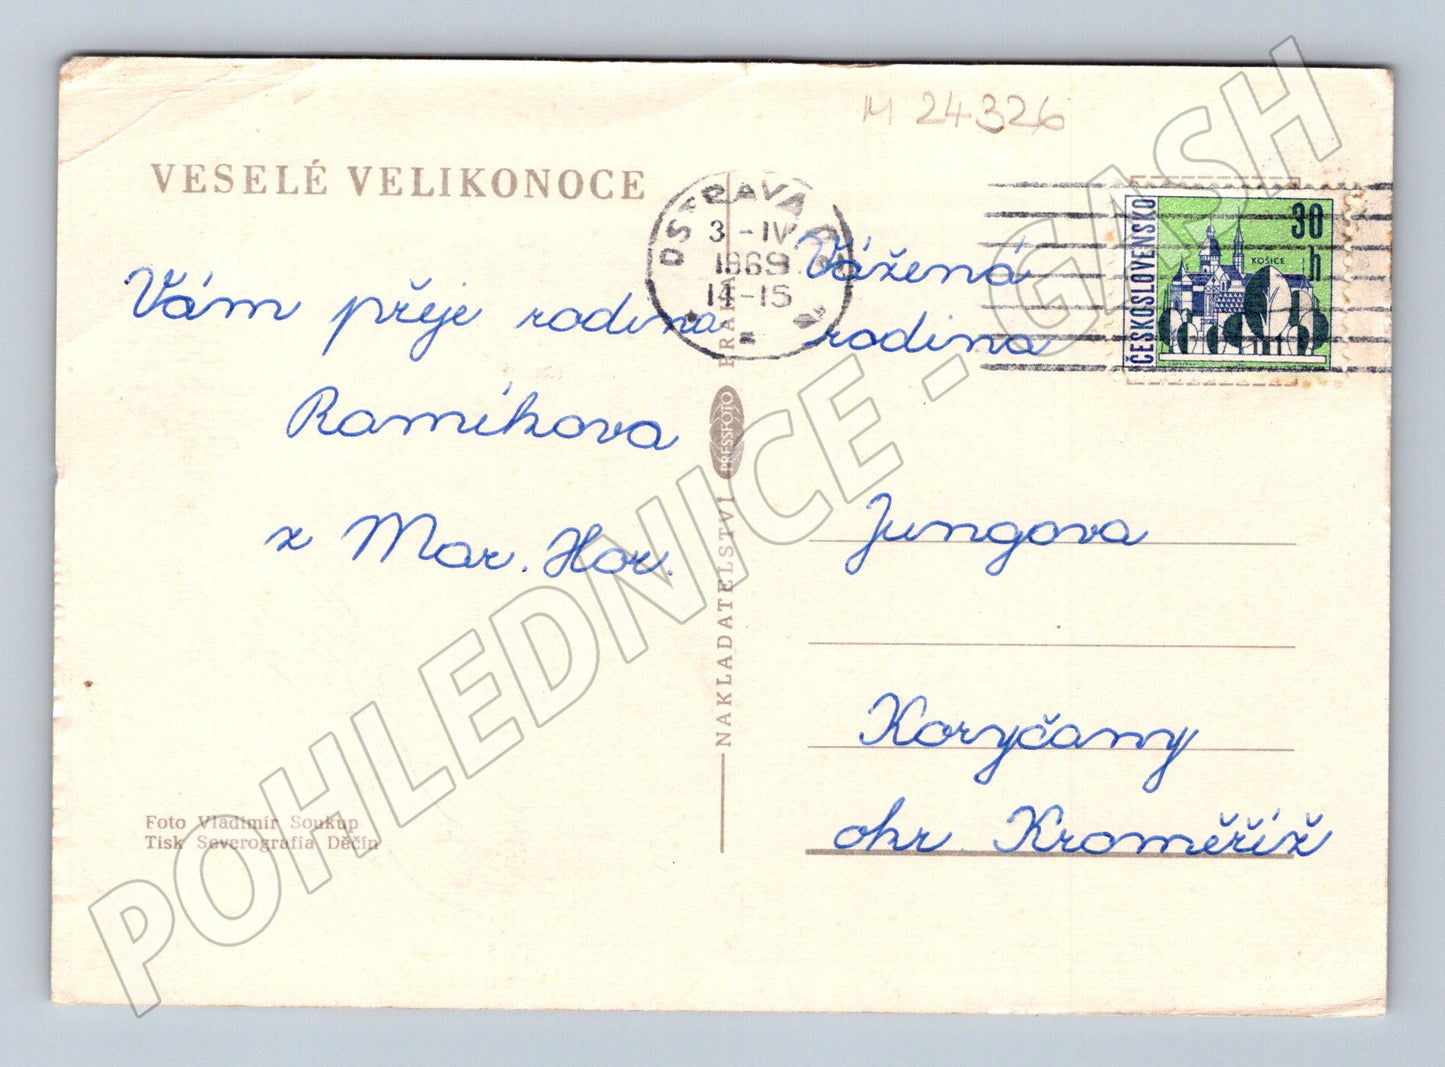 M 24326
VESELÉ VELIKONOCE
Vám přeje rodina
Ramíkova
z Mar. Hor.
Foto Vladimír Soukup
Tisk Severografia Děčín
NAKLADATELSTVÍ PRESSFOTO PRAHA
OSTRAVA
3 - IV
1969
14-15
ČESKOSLOVENSKO
30
h
KOŠICE
Vážená
rodina
Jungova
Koryčany
okr. Kroměříž
POHLEDNICE - GASH